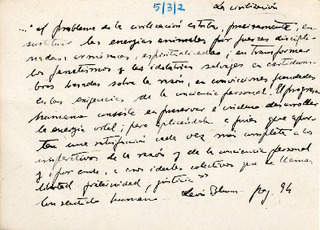 5/3/2
La civilización
... "el problema de la civilización estriba, precisamente, en
sustituir las energías animales por fuerzas discipli-
nadas, armónicas, espiritualizadas; en transformar
los fanatismos y las idolatrías salvajes en certidum-
bres basadas sobre la razón, en convicciones fundadas
en las exigencias de la conciencia personal. El progreso
humano consiste en preservar e incluso desarrollar
la energía vital; pero aplicándola a fines que apor-
ten una satisfacción cada vez más completa a los
imperativos de la razón y de la conciencia personal
y, por ende, a esos ideales colectivos que se llaman
libertad fraternidad, justicia"
León Blum - pag. 94